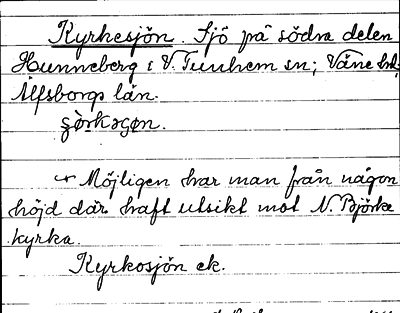 Kyrkesjön. Sjö på södra delen
Hunneberg i V. Tunhem sn; Väne hd;
Älfsborgs län.
Möjligen har man från någon
höjd där haft utsikt mot N. Björke
kyrka.
Kyrkosjön ek.